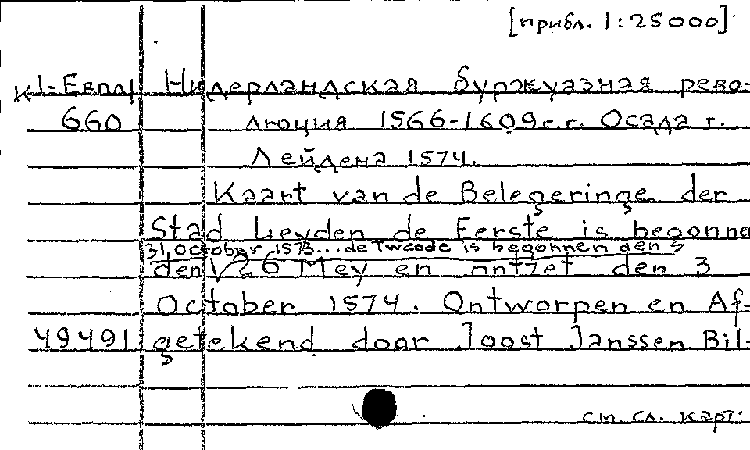 [прибл. 1:25000]
К1-Европ Нидерландская буржуазная рево-
660 люция 1566-1609 г.г. Осада г.
Лейдена 1574.
Kaart van de Belegeringe der
Stad Leyden de Eerste is begonne
31 October 1573... de Tweede is begonnen den
den 26 Mey en ontzet den 3
October 1574. Ontworpen en Af-
49491 getekend door Joost Janssen Bil-
см. сл. карт.